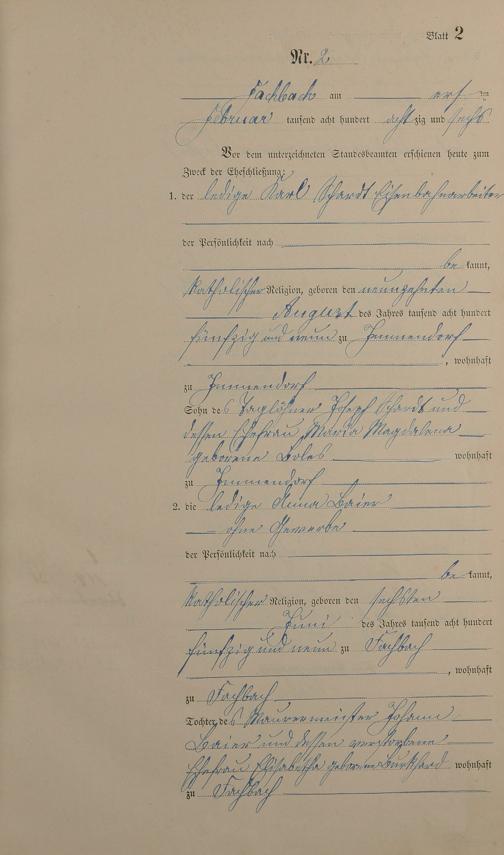 Blatt 2
Nr. 2
Fachbach am ersten
Februar tausend acht hundert acht zig und sechs
Vor dem unterzeichneten Standesbeamten erschienen heute zum
Zweck der Eheschließung:
1. der ledige Karl Schardt Eisenbahnarbeiter
der Persönlichkeit nach
be kannt,
katholischer Religion, geboren den neunzehnten
August des Jahres tausend acht hundert
fünfzig und neun zu Immendorf
, wohnhaft
zu Immendorf
Sohn des Taglöhner Joseph Schardt und
dessen Ehefrau Maria Magdalena
geborene wohnhaft
zu Immendorf
2. die ledige Anna Baier
ohne Gewerbe
der Persönlichkeit nach
be kannt,
katholischer Religion, geboren den sechsten
Juni des Jahres tausend acht hundert
fünfzig und neun zu Fachbach
, wohnhaft
zu Fachbach
Tochter des Maurermeister Johann
Baier und dessen verstorbene
Ehefrau Elisabetha geborene Burkhard wohnhaft
zu Fachbach